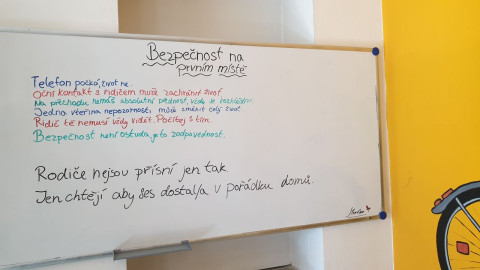 Bezpečnost na
prvním místě
Telefon počká, život ne.
Oční kontakt s řidičem může zachránit život
Na přechodu nemáš absolutní přednost, vždy se rozhlédni.
Jedna vteřina nepozornosti může změnit celý život
Řidič tě nemusí vždy vidět. Počítej s tím.
Bezpečnost není ostuda, je to zodpovědnost.
Rodiče nejsou přísní jen tak.
Jen chtějí aby ses dostal/a v pořádku domů.